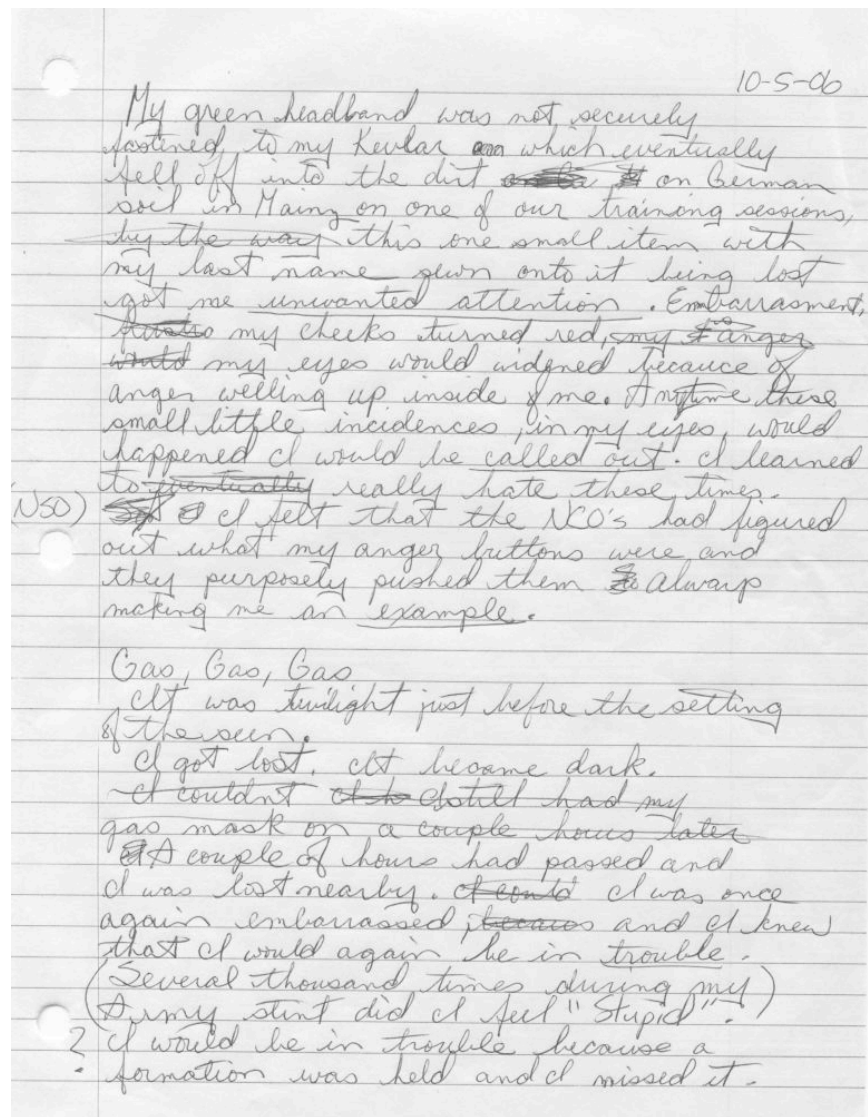 10-5-06
My green headband was not securely
fastined to my Kevlar which eventually
fell off into the dirt on German
soil in Mainz on one of our training sessions,
by the way this one small item with
my last name sewn onto it being lost
got me unwanted attention. Embarrasment,
my cheeks turned red, my anger
would my eyes would widned because of
anger welling up inside of me. Anytime these
small little incidences, in my eyes, would
happened I would be called out. I learned
to eventually really hate these times.
(NSO) I felt that the NCO's had figured
out what my anger buttons were and
they purposely pushed them Always
making me an example.
Gas, Gas, Gas
It was twilight just before the setting
of the sun.
I got lost. It became dark.
I couldn't I still had my
gas mask on a couple hours later
A couple of hours had passed and
I was lost nearby. I could I was once
again embarrassed, because and I knew
that I would again be in trouble.
(Several thousand times during my
Army stint did I feel "Stupid".)
? I would be in trouble because a
formation was held and I missed it.